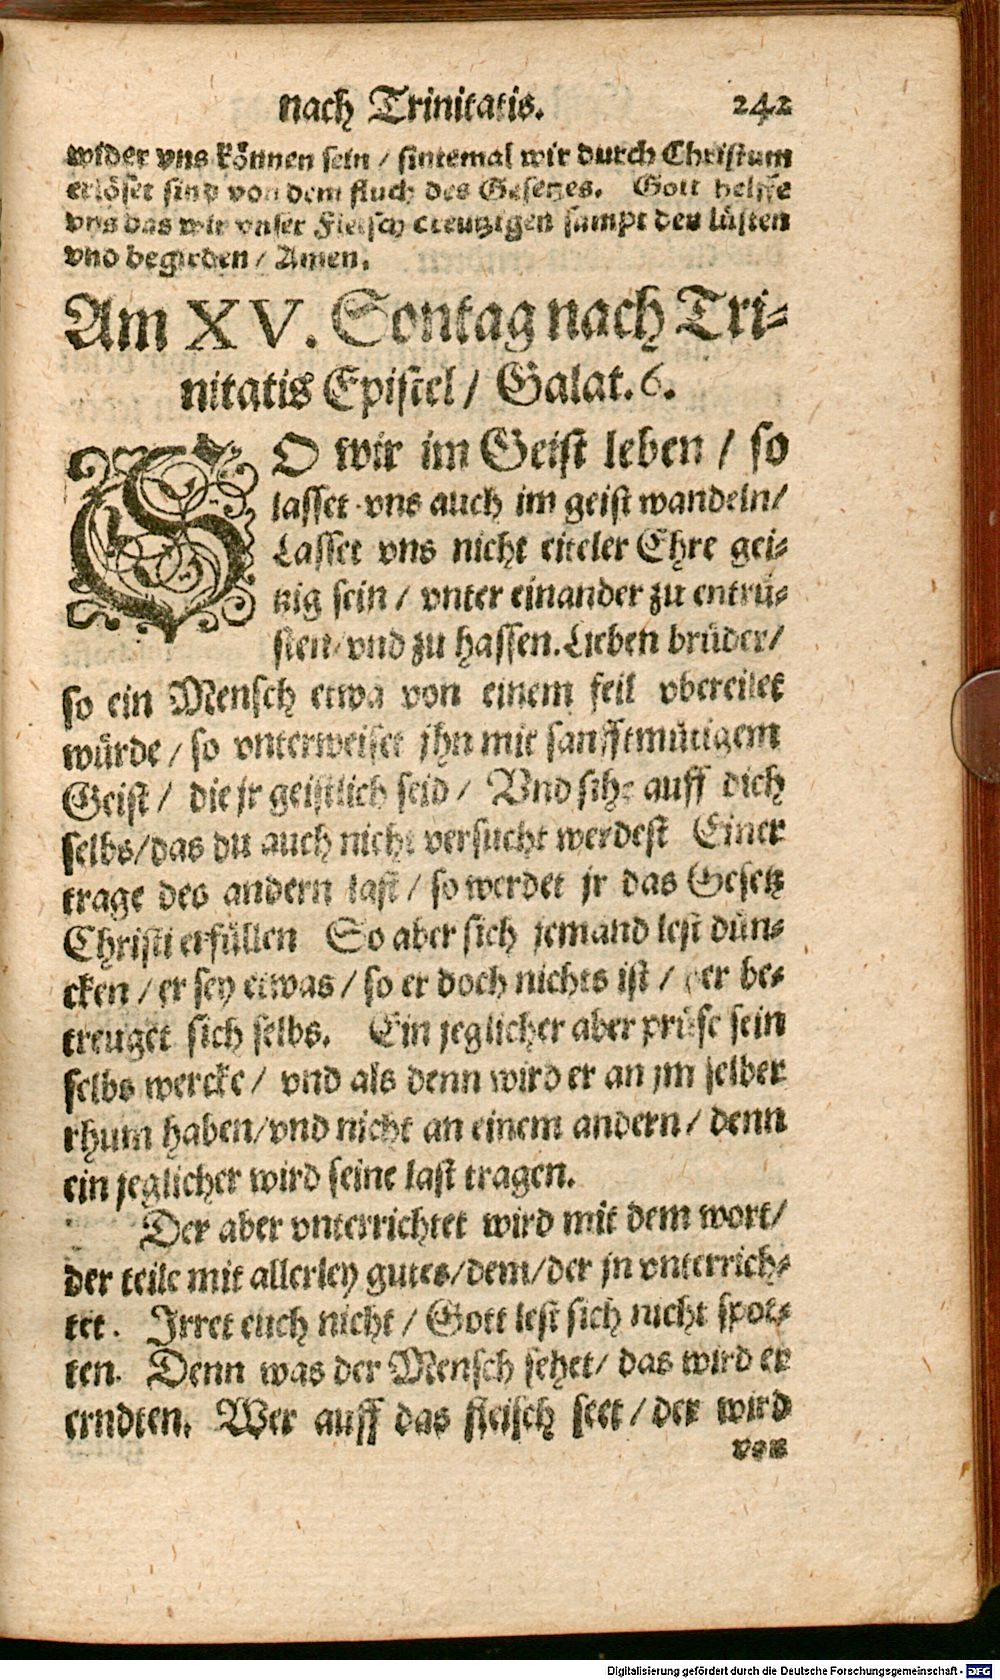 nach Trinitatis. 242
wider vns können sein / sintemal wir durch Christum
erlöset sind von dem fluch des Gesetzes. Gott helffe
vns das wir vnser Fleisch creutzigen sampt den lüsten
vnd begirden / Amen.
Am XV. Sontag nach Tri-
nitatis Epistel / Galat. 6.
SO wir im Geist leben / so
lasset vns auch im geist wandeln /
Lasset vns nicht eiteler Ehre gei-
tzig sein / vnter einander zu entrü-
sten / vnd zu hassen. Lieben brüder /
so ein Mensch etwa von einem feil vbereilet
würde / so vnterweiset jhn mit sanfftmütigem
Geist / die jr geistlich seid / Vnd sihe auff dich
selbs / das du auch nicht versucht werdest Einer
trage des andern last / so werdet jr das Gesetz
Christi erfüllen So aber sich jemand lest dün-
cken / er sey etwas / so er doch nichts ist / der be-
treuget sich selbs. Ein jeglicher aber prüfe sein
selbs wercke / vnd als denn wird er an jm selber
rhum haben / vnd nicht an einem andern / denn
ein jeglicher wird seine last tragen.
Der aber vnterrichtet wird mit dem wort /
der teile mit allerley gutes / dem / der jn vnterrich-
tet. Irret euch nicht / Gott lest sich nicht spot-
ten. Denn was der Mensch sehet / das wird er
erndten. Wer auff das fleisch seet / der wird
von
Digitalisierung gefördert durch die Deutsche Forschungsgemeinschaft - DFG